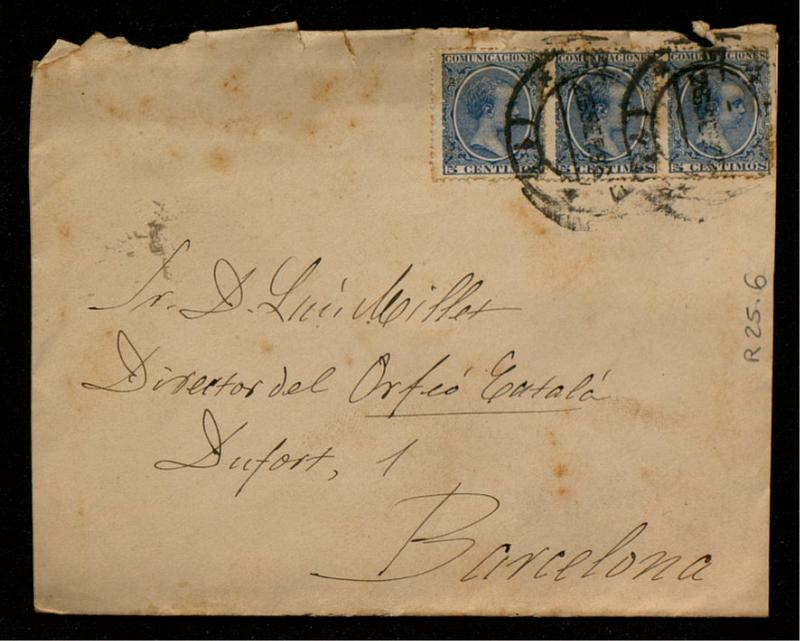 COMUNICACIONES COMUNICACIONES COMUNICACIONES
5 CENTIMOS 5 CENTIMOS 5 CENTIMOS
Sr. D. Luís Millet
Director del Orfeó Catalá
Dufort, 1
Barcelona
R 25.6